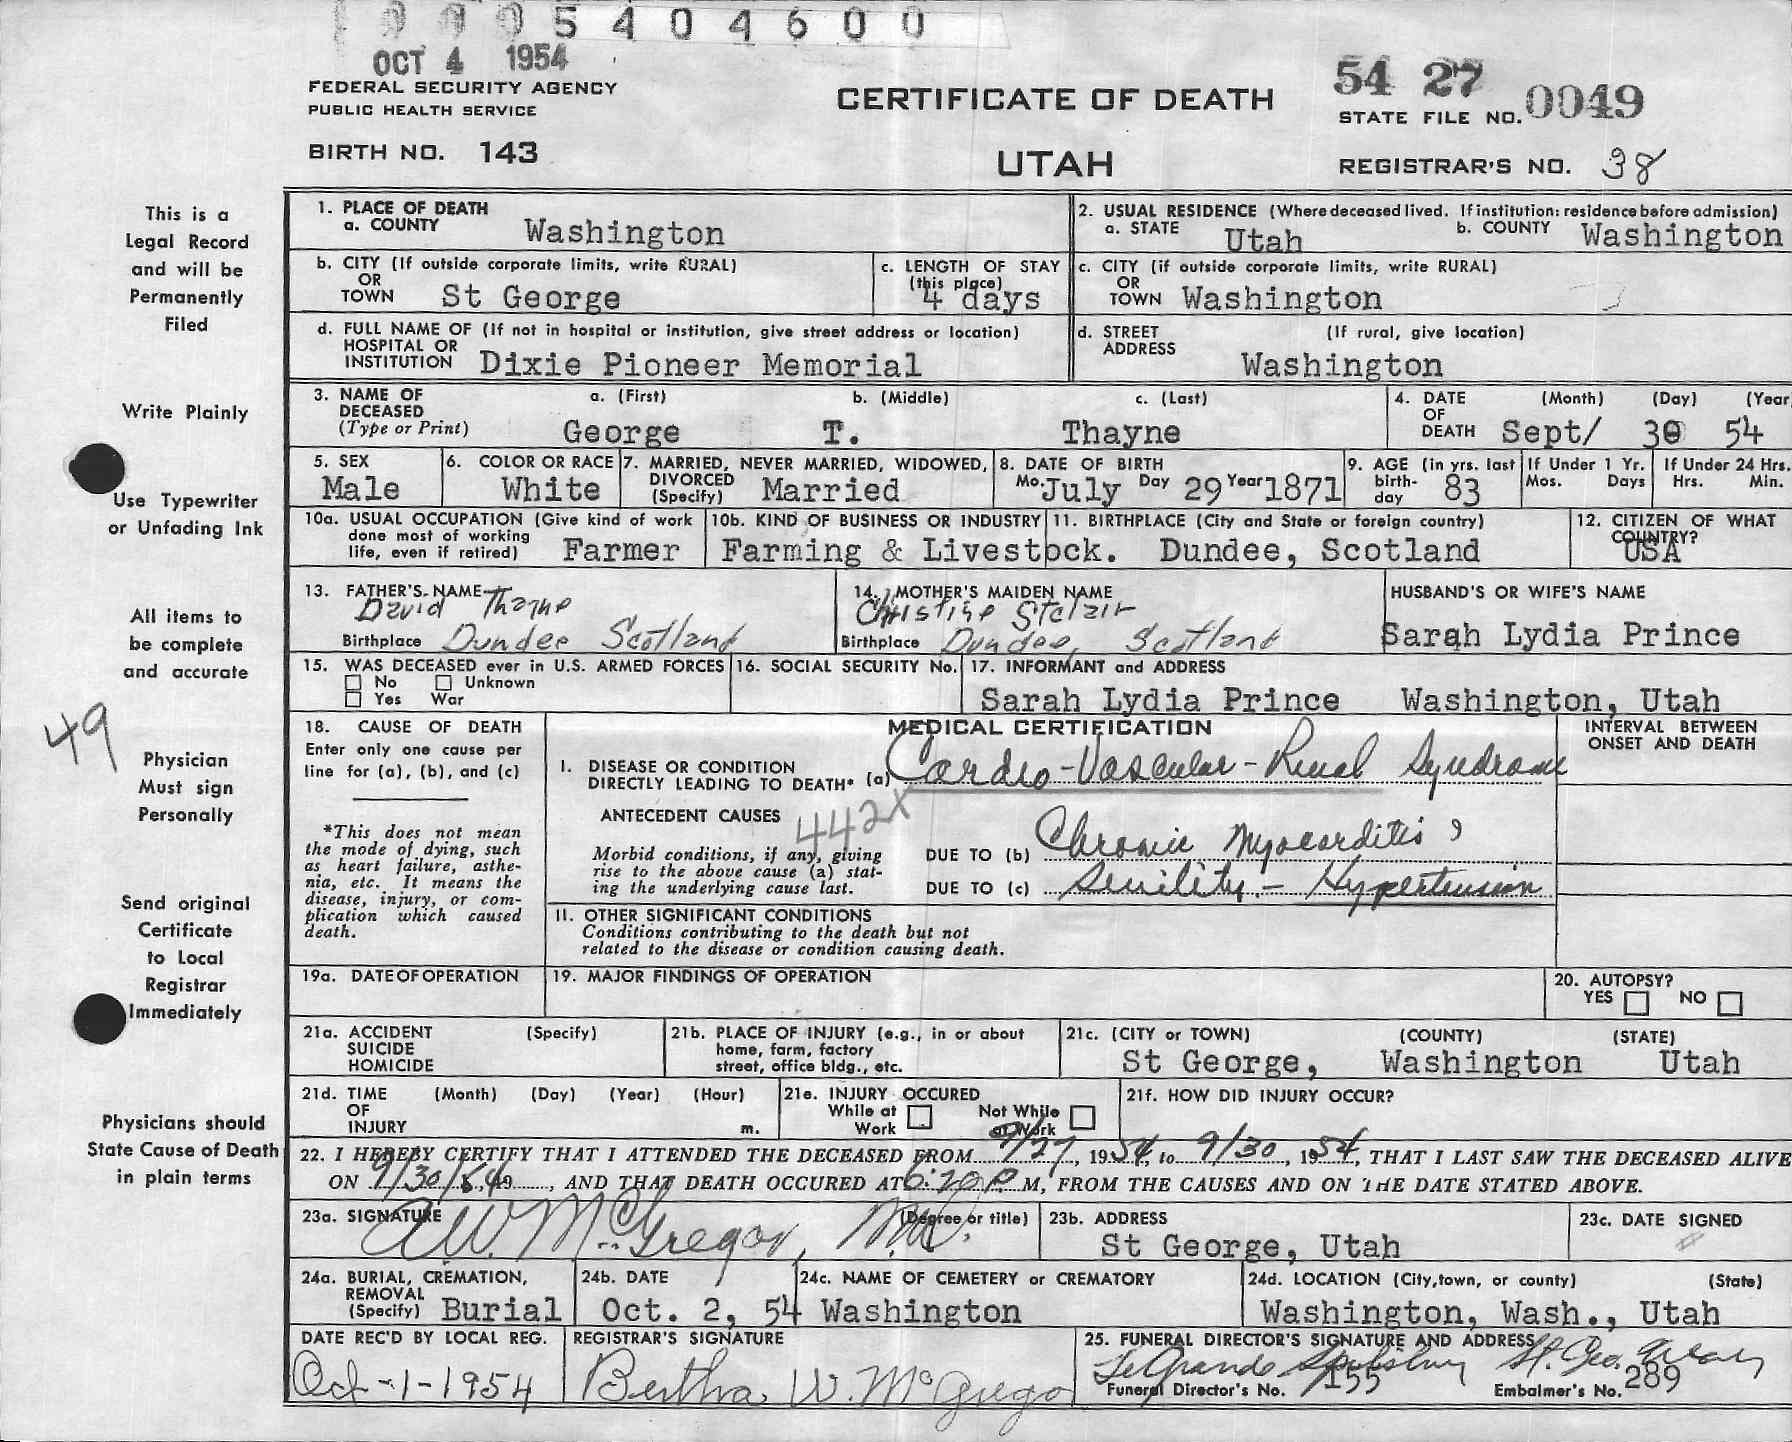 5404600
OCT 4 1954
FEDERAL SECURITY AGENCY
PUBLIC HEALTH SERVICE
BIRTH NO. 143
CERTIFICATE OF DEATH
UTAH
54 27
STATE FILE NO. 0049
REGISTRAR'S NO. 38
This is a
Legal Record
and will be
Permanently
Filed
Write Plainly
Use Typewriter
or Unfading Ink
All items to
be complete
and accurate
49
Physician
Must sign
Personally
Send original
Certificate
to Local
Registrar
Immediately
Physicians should
State Cause of Death
in plain terms
1. PLACE OF DEATH
a. COUNTY Washington
2. USUAL RESIDENCE (Where deceased lived. If institution: residence before admission)
a. STATE Utah b. COUNTY Washington
b. CITY (If outside corporate limits, write RURAL)
OR
TOWN St George
c. LENGTH OF STAY
(this place)
4 days
c. CITY (if outside corporate limits, write RURAL)
OR
TOWN Washington
d. FULL NAME OF (If not in hospital or institution, give street address or location)
HOSPITAL OR
INSTITUTION Dixie Pioneer Memorial
d. STREET (If rural, give location)
ADDRESS
Washington
3. NAME OF a. (First) b. (Middle) c. (Last)
DECEASED
(Type or Print) George T. Thayne
4. DATE (Month) (Day) (Year
OF
DEATH Sept/ 30 54
5. SEX
Male
6. COLOR OR RACE
White
7. MARRIED, NEVER MARRIED, WIDOWED,
DIVORCED
(Specify) Married
8. DATE OF BIRTH
Mo. July Day 29 Year 1871
9. AGE (in yrs. last
birth-
day 83
If Under 1 Yr.
Mos. Days
If Under 24 Hrs.
Hrs. Min.
10a. USUAL OCCUPATION (Give kind of work
done most of working
life, even if retired) Farmer
10b. KIND OF BUSINESS OR INDUSTRY
Farming & Livestock.
11. BIRTHPLACE (City and State or foreign country)
Dundee, Scotland
12. CITIZEN OF WHAT
COUNTRY?
USA
13. FATHER'S NAME
David Thayne
Birthplace Dundee Scotland
14. MOTHER'S MAIDEN NAME
Christine Stclair
Birthplace Dundee, Scotland
HUSBAND'S OR WIFE'S NAME
Sarah Lydia Prince
15. WAS DECEASED ever in U.S. ARMED FORCES
No Unknown
Yes War
16. SOCIAL SECURITY No.
17. INFORMANT and ADDRESS
Sarah Lydia Prince Washington, Utah
18. CAUSE OF DEATH
Enter only one cause per
line for (a), (b), and (c)
*This does not mean
the mode of dying, such
as heart failure, asthe-
nia, etc. It means the
disease, injury, or com-
plication which caused
death.
MEDICAL CERTIFICATION
INTERVAL BETWEEN
ONSET AND DEATH
I. DISEASE OR CONDITION
DIRECTLY LEADING TO DEATH* (a) Cardio-Vascular-Renal Syndrome
ANTECEDENT CAUSES 442X
Morbid conditions, if any, giving
rise to the above cause (a) stat-
ing the underlying cause last.
DUE TO (b) Chronic Myocarditis &
DUE TO (c) Senility - Hypertension
II. OTHER SIGNIFICANT CONDITIONS
Conditions contributing to the death but not
related to the disease or condition causing death.
19a. DATE OF OPERATION
19. MAJOR FINDINGS OF OPERATION
20. AUTOPSY?
YES NO
21a. ACCIDENT (Specify)
SUICIDE
HOMICIDE
21b. PLACE OF INJURY (e.g., in or about
home, farm, factory
street, office bldg., etc.
21c. (CITY or TOWN) (COUNTY) (STATE)
St George, Washington Utah
21d. TIME (Month) (Day) (Year) (Hour)
OF
INJURY m.
21e. INJURY OCCURED
While at Not While
Work at Work
21f. HOW DID INJURY OCCUR?
22. I HEREBY CERTIFY THAT I ATTENDED THE DECEASED FROM 9/27, 1954, to 9/30, 1954, THAT I LAST SAW THE DECEASED ALIVE
ON 9/30/54, 19, AND THAT DEATH OCCURED AT 6:20 P. M, FROM THE CAUSES AND ON THE DATE STATED ABOVE.
23a. SIGNATURE (Degree or title)
A.W. McGregor, M.D.
23b. ADDRESS
St George, Utah
23c. DATE SIGNED
24a. BURIAL, CREMATION,
REMOVAL
(Specify) Burial
24b. DATE
Oct. 2, 54
24c. NAME OF CEMETERY or CREMATORY
Washington
24d. LOCATION (City, town, or county) (State)
Washington, Wash., Utah
DATE REC'D BY LOCAL REG.
Oct-1-1954
REGISTRAR'S SIGNATURE
Bertha W. McGregor
25. FUNERAL DIRECTOR'S SIGNATURE AND ADDRESS
LeGrande Spilsbury St. Geo. Utah
Funeral Director's No. 155 Embalmer's No. 289